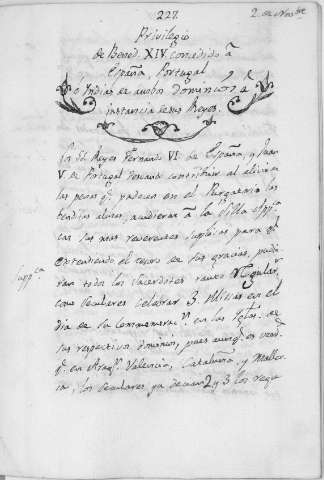 227.
2. de Nov.bre
Privilegio
de Bened. XIV. concedido á
España, Portugal
é Indias de ambos dominios, á
instancia de sus Reyes.
Los dos Reyes Fernando VI. de España, y Juan
V. de Portugal deseando contribuir al alivio en
las penas q.e padecen en el Purgatorio las
benditas almas, acudieron á la Silla App.ca
con sus mas reverentes suplicas para q.e
extendiendo el tesoro de sus gracias, pudie
Supp.ca
ran todos los Sacerdotes tanto Regular.s
como Seculares celebrar 3. Missas en el
dia de la Commemorac.n en las Igles.s de
sus respectivos dominios, pues aunq.e es verd.d
q.e en Arag.n, Valencia, Cataluña, y Mallor
ca, los Seculares ya decian 2 y 3 los regu